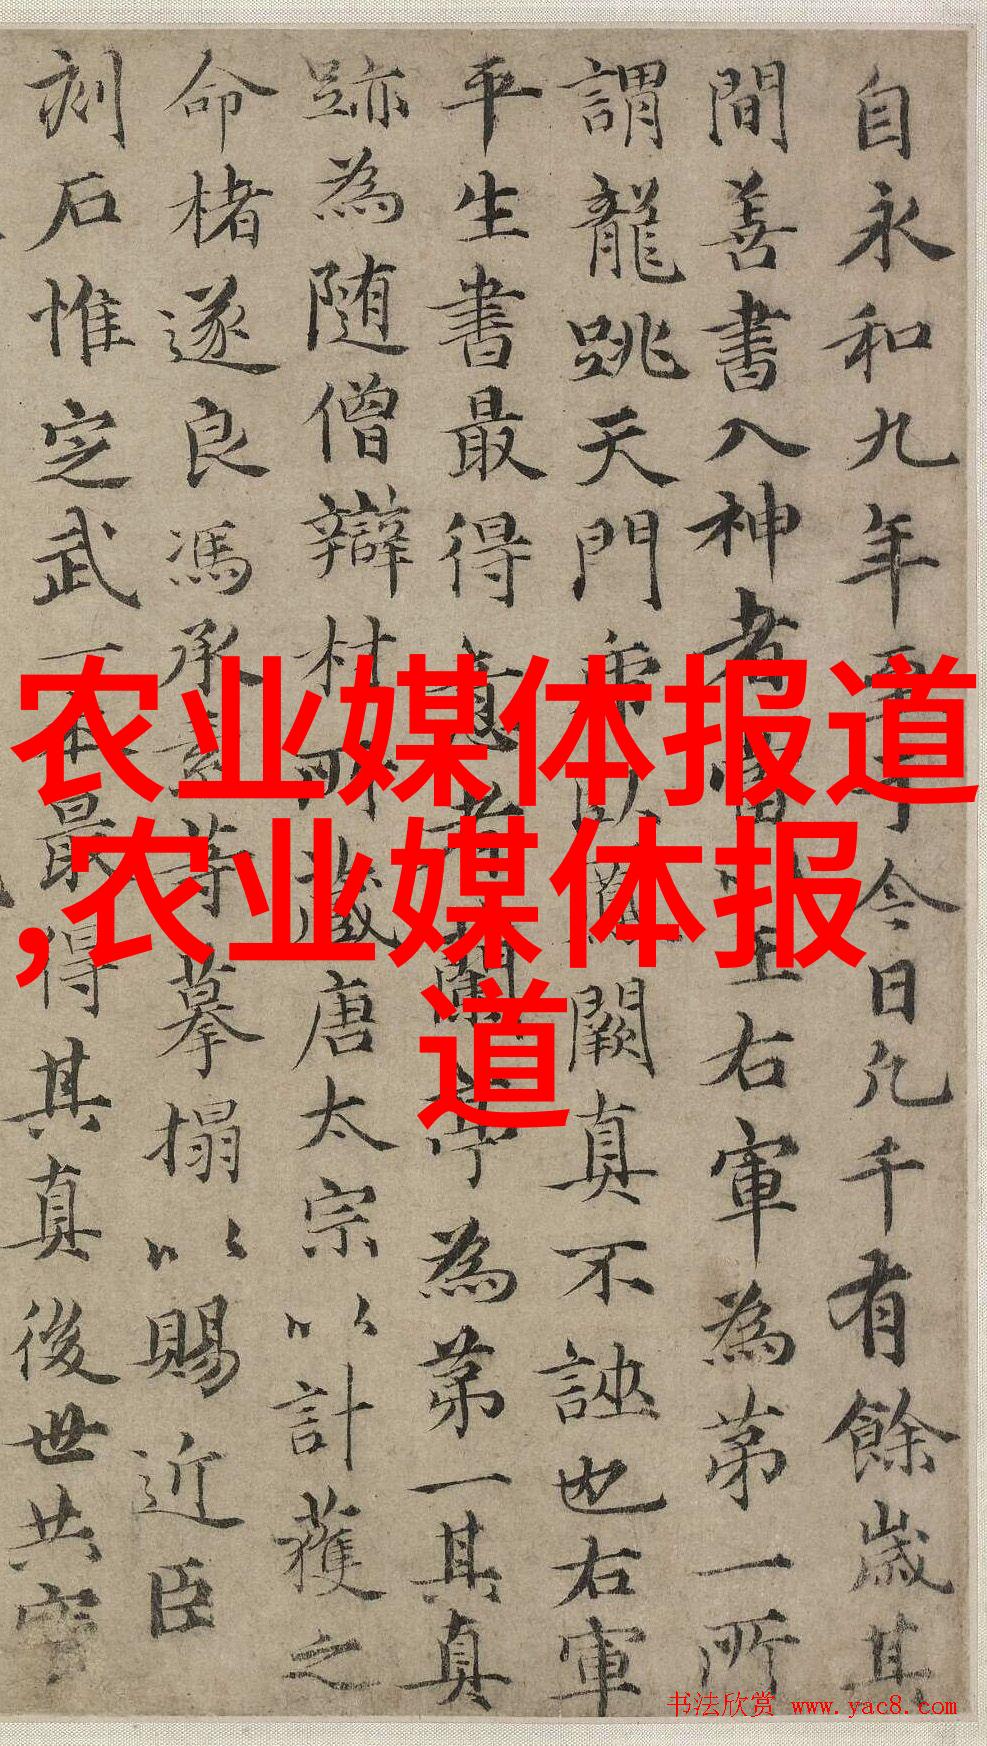 自永和九年今日凡千有餘歲其
間善書入神者當王右軍為第一所
謂龍跳天門虎臥鳳闕真不誣也右軍
平生書最得意者蘭亭為第一其真
跡為隨僧辯材所藏唐太宗以計獲之
命楮遂良馮承素等摹搨以賜近臣
刻石惟定武一本最得其真後世共寶
农业媒体报道
,农业媒体报
道
书法欣赏 www.yac8.com